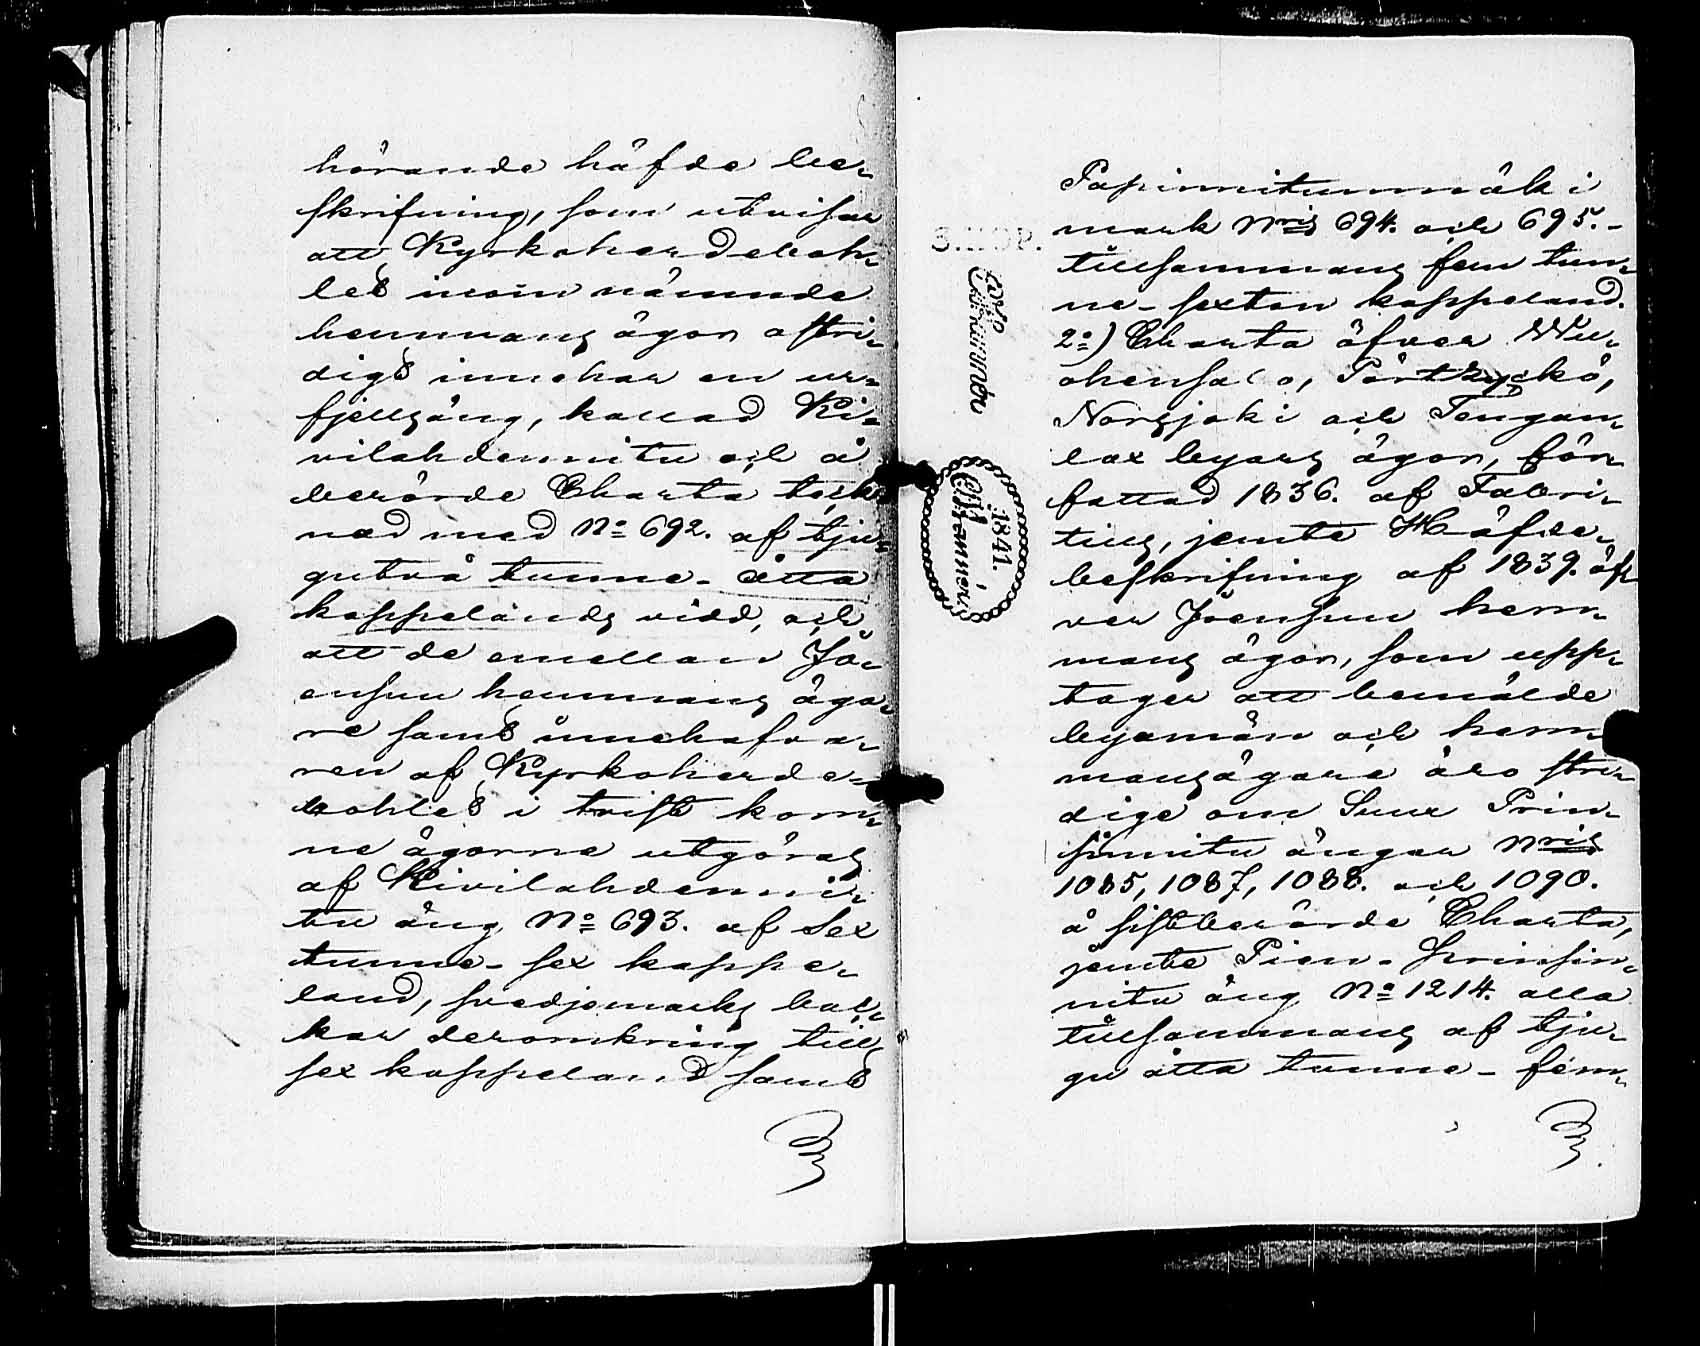 hörande häfde be-
skrifning, som utvisar
att Kyrkoherdeboh-
let inom nämnde
hemmans ägor ostri-
digt innehar en ur-
fjellsäng, kallad Ki-
vilahdennitu och å
berörde Charta teck-
nad med No 692. af tju-
gutvå tunne- åtta
kappelands vidd, och
att de emellan Jo-
ensuu hemmans äga-
re samt innehafva-
ren af Kyrkoherde-
bohlet i tvist kom-
ne ägorne utgöras
af Kivilahdenni-
tu äng No 693. af Sex
tunne- sex kappe-
land, svedjemarks bac-
kar deromkring till
sex kappeland samt
Papinnitunmäki
mark Nris 694. och 695.-
tillsammans fem tun-
ne- sexton kappeland.
2o) Charta öfver Wu-
ohensalo,
Norssjoki och Tengan-
lax byars ägor, för-
fattad 1836. af Fabri-
tius, jemte Häfde-
beskrifning af 1839. öf-
ver Joensuu hem-
mans ägor, som upp-
tager att bemälde
byamän och hem-
mansägare äro stri-
dige om Suur Prin-
sinnitu ängar Nris
1085, 1087, 1088. och 1090.
å sistberörde Charta,
jemte Pien- Prinsin-
nitu äng No 1214. alla
tillsammans af tju-
gu åtta tunne- fem-
1841.